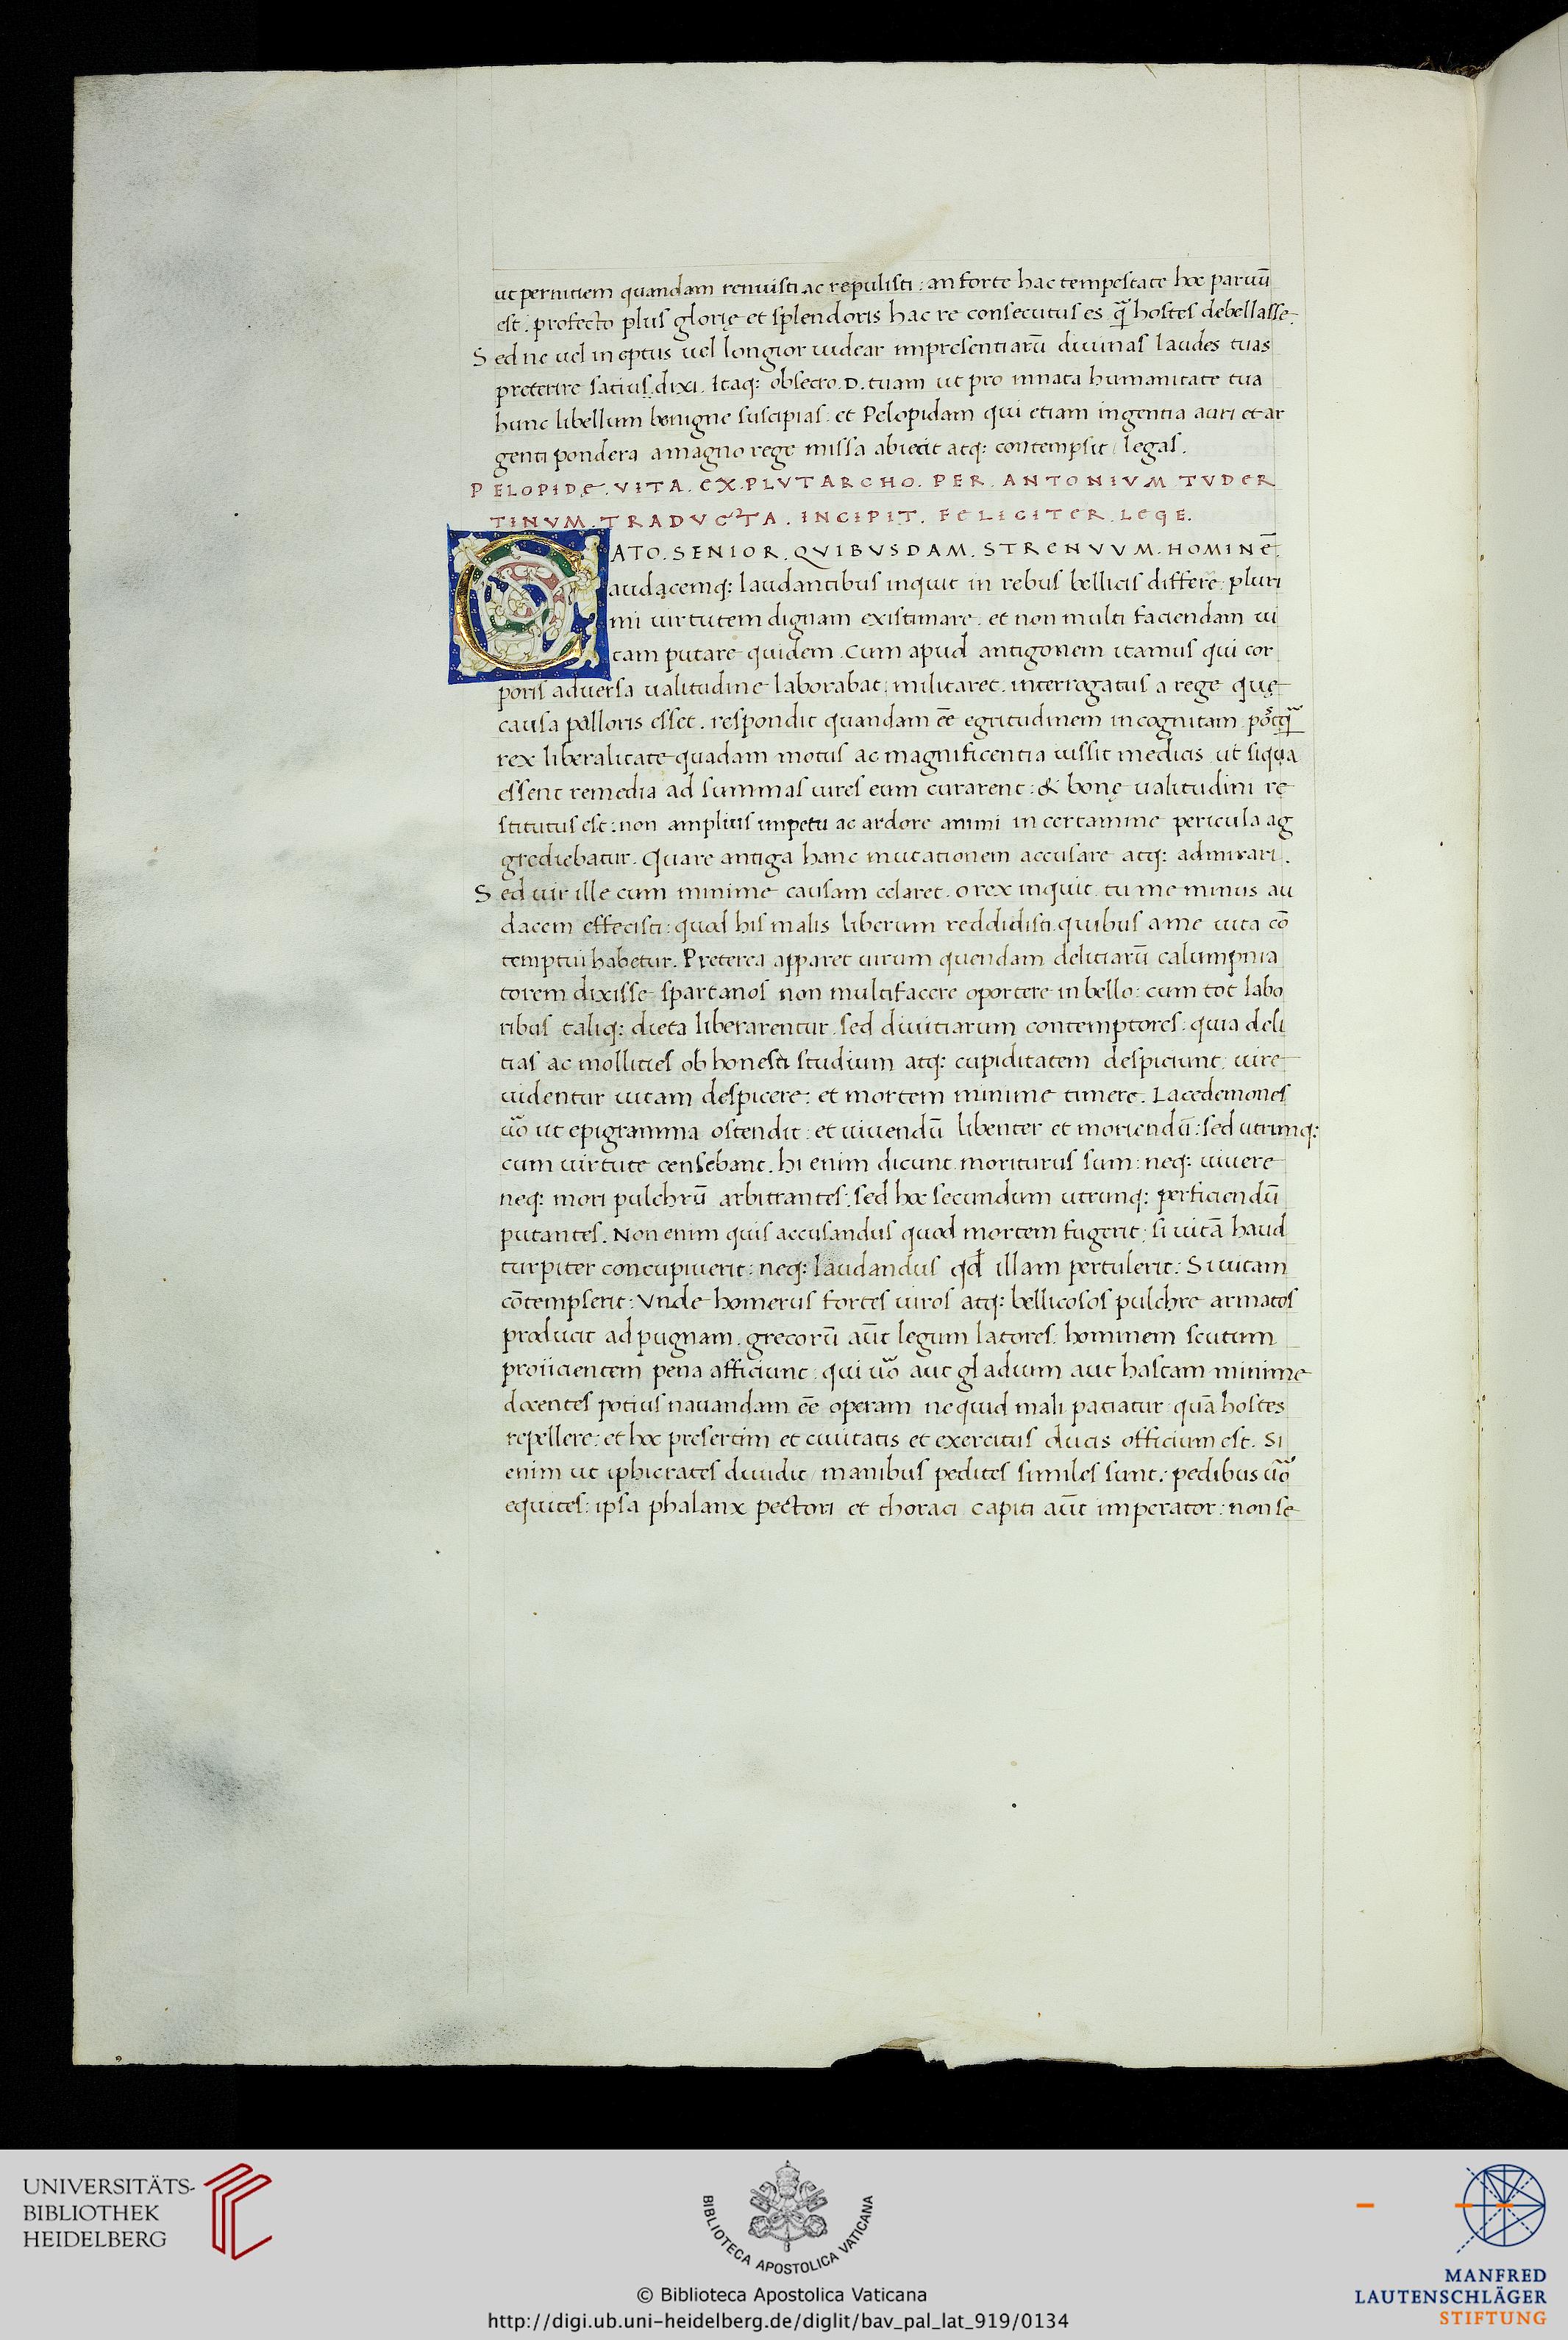 ut pernitiem quandam renuisti ac repulisti : an forte hac tempestate hoc paruū
est . profecto plus glorię et splendoris hac re consecutus es . q̄ hostes debellasse .
Sed ne uel ineptus uel longior uidear inpresentiarū diuinas laudes tuas
preterire satius dixi . Itaq: obsecro . D . tuam ut pro innata humanitate tua
hunc libellum benigne suscipias . et Pelopidam qui etiam ingentia auri et ar
genti pondera a magno rege missa abiecit atq: contempsit / legas .
PELOPIDĘ . VITA . EX . PLVTARCHO . PER . ANTONIVM TVDER
TINVM . TRADVCTA . INCIPIT . FELICITER . LEGE .
CATO . SENIOR . QVIBVSDAM . STRENVVM . HOMINĒ .
audacemq: laudantibus inquit in rebus bellicis differē : pluri
mi uirtutem dignam existimare . et non multi faciendam ui
tam putare quidem . Cum apud antigonem itamus qui cor
poris aduersa ualitudine laborabat : militaret . interrogatus a rege quę
causa palloris esset . respondit quandam ēē egritudinem incognitam . postq̄
rex liberalitate quadam motus ac magnificentia iussit medicis ut siqua
essent remedia ad summas uires eum curarent : & bonę ualitudini re
stitutus est : non amplius impetu ac ardore animi in certamine pericula ag
grediebatur . Quare antiga hanc mutationem accusare atq: admirari .
Sed uir ille cum minime causam celaret . o rex inquit . tu me minus au
dacem effecisti : quod his malis liberum reddidisti quibus a me uita cō
temptui habetur . Preterea apparet uirum quendam delitiarū calumpnia
torem dixisse spartanos non multifacere oportere in bello : cum tot labo
ribus taliq: dieta liberarentur . sed diuitiarum contemptores : quia deli
tias ac mollities ob honesti studium atq: cupiditatem despiciunt . uire
uidentur uitam despicere : et mortem minime timere . Lacedemones
ūo ut epigramma ostendit : et uiuendū libenter et moriendū : sed utrunq:
cum uirtute censebant . hi enim dicunt moriturus sum : neq: uiuere
neq: mori pulchrū arbitrantes : sed hoc secundum utrunq: perficiendū
putantes . Non enim quis accusandus quod mortem fugerit : si uitā haud
turpiter concupiuerit : neq: laudandus qđ illam pertulerit : Si uitam
cōtempserit : Vnde homerus fortes uiros atq: bellicosos pulchre armatos
producit ad pugnam . grecorū aūt legum latores : hominem scutum
proiicientem pena afficiunt : qui ūo aut gladium aut hastam minime
docentes potius nauandam ēē operam ne quid mali patiatur quā hostes
repellere : et hoc presertim et ciuitatis et exercitus ducis officium est . Si
enim ut iphicrates diuidit / manibus pedites similes sunt . pedibus ūo
equites : ipsa phalanx pectori et thoraci capiti aūt imperator : non se
UNIVERSITÄTS-
BIBLIOTHEK
HEIDELBERG
BIBLIOTECA APOSTOLICA VATICANA
© Biblioteca Apostolica Vaticana
http://digi.ub.uni-heidelberg.de/diglit/bav_pal_lat_919/0134
MANFRED
LAUTENSCHLÄGER
STIFTUNG